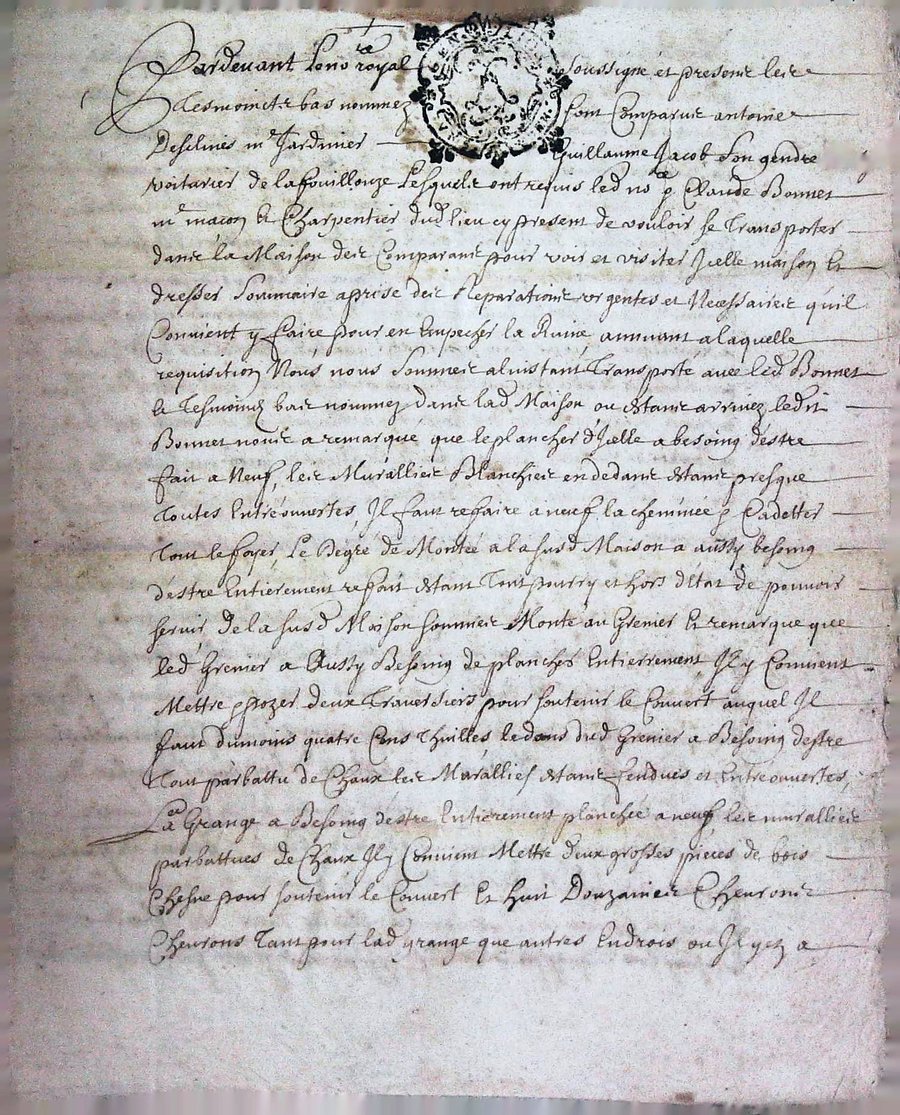 Pardevant le no.re royal soussigné et presents les
tesmoincts bas nommez sont Comparus antoine
Desclines m.e Jardinier Guillaume Jacob son gendre
voiturier de lafouillouze Lesquels ont requis led no.re & Claude Bonnet
m.e macon et Charpentier dud lieu cy present de vouloir se Transporter
dans la Maison des Comparants pour voir et visiter Jcelle maison Et
dresser Sommaire aprise des Reparations urgentes et Necessaires quil
Convient y faire pour en Empecher la Ruine suivant alaquelle
requisition Nous nous sommes alinstant Transporté avec led Bonnet
et Tesmoings bas nommez dans lad Maison ou Estants arrivez ledit
Bonnet nous a remarqué que leplancher dJcelle a besoing destre
fait a Neuf, les Murallies Blanchies endedans Estants presque
Toutes Entréouvertes, Jl faut reffaire a neuf la cheminée & Cadetter
Tout le foyer, Le Degré de Montée a la susd Maison a aussy besoing
destre Entierement refait Estant Tout pourry et hors d'Etat de pouvoir
servir, de la susd Maison sommes Monté au Grenier Et remarque que
led Grenier a Aussy Besoing de planches Entierrement Jl y Convient
Mettre & pozer deux Traversiers pour soutenir le Couvert auquel Jl
faut dumoins quatre Cens Thuilles ledans dud Grenier a Besoing destre
Tout parbattu de Chaux les Murallies Estants fendues et Entreouvertes,
La Grange a Besoing destre Entierement planchée a neuf, les murallies
parbattues de Chaux Jl y Convient Mettre deux grosses pieces de bois
Chesne pour soutenir le Couvert Et huit Douzaines Chevrons
Chevrons Tant pour lad grange que autres Endrois ou Jl y en a